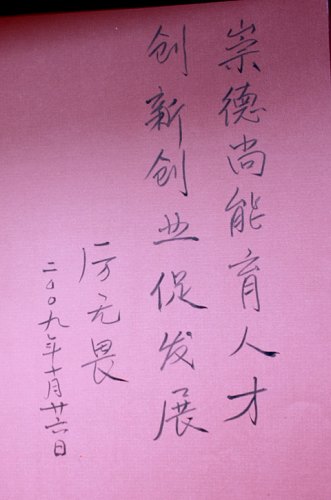 崇德尚能育人才
创新创业促发展
厉无畏
二〇〇九年十月廿六日